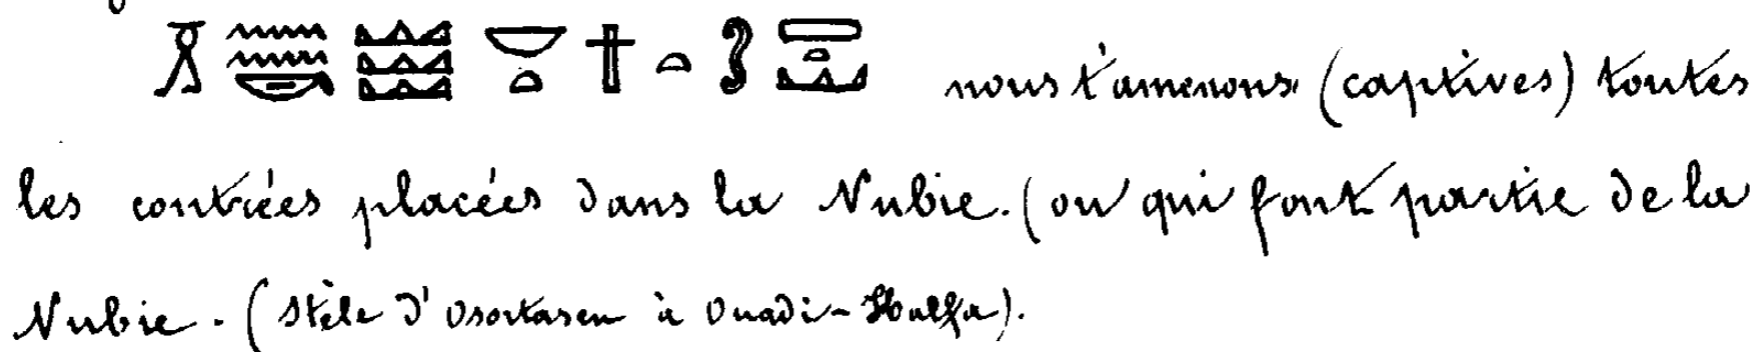 𓏎𓈖𓈖𓎡𓈉𓈉𓈉𓎟𓏏𓏶𓏏𓈇𓏏𓈉 nous t'amenons (captives) toutes
les contrées placées dans la Nubie. (ou qui font partie de la
Nubie. (Stèle d'Osortasen à Ouadi-Halfa).